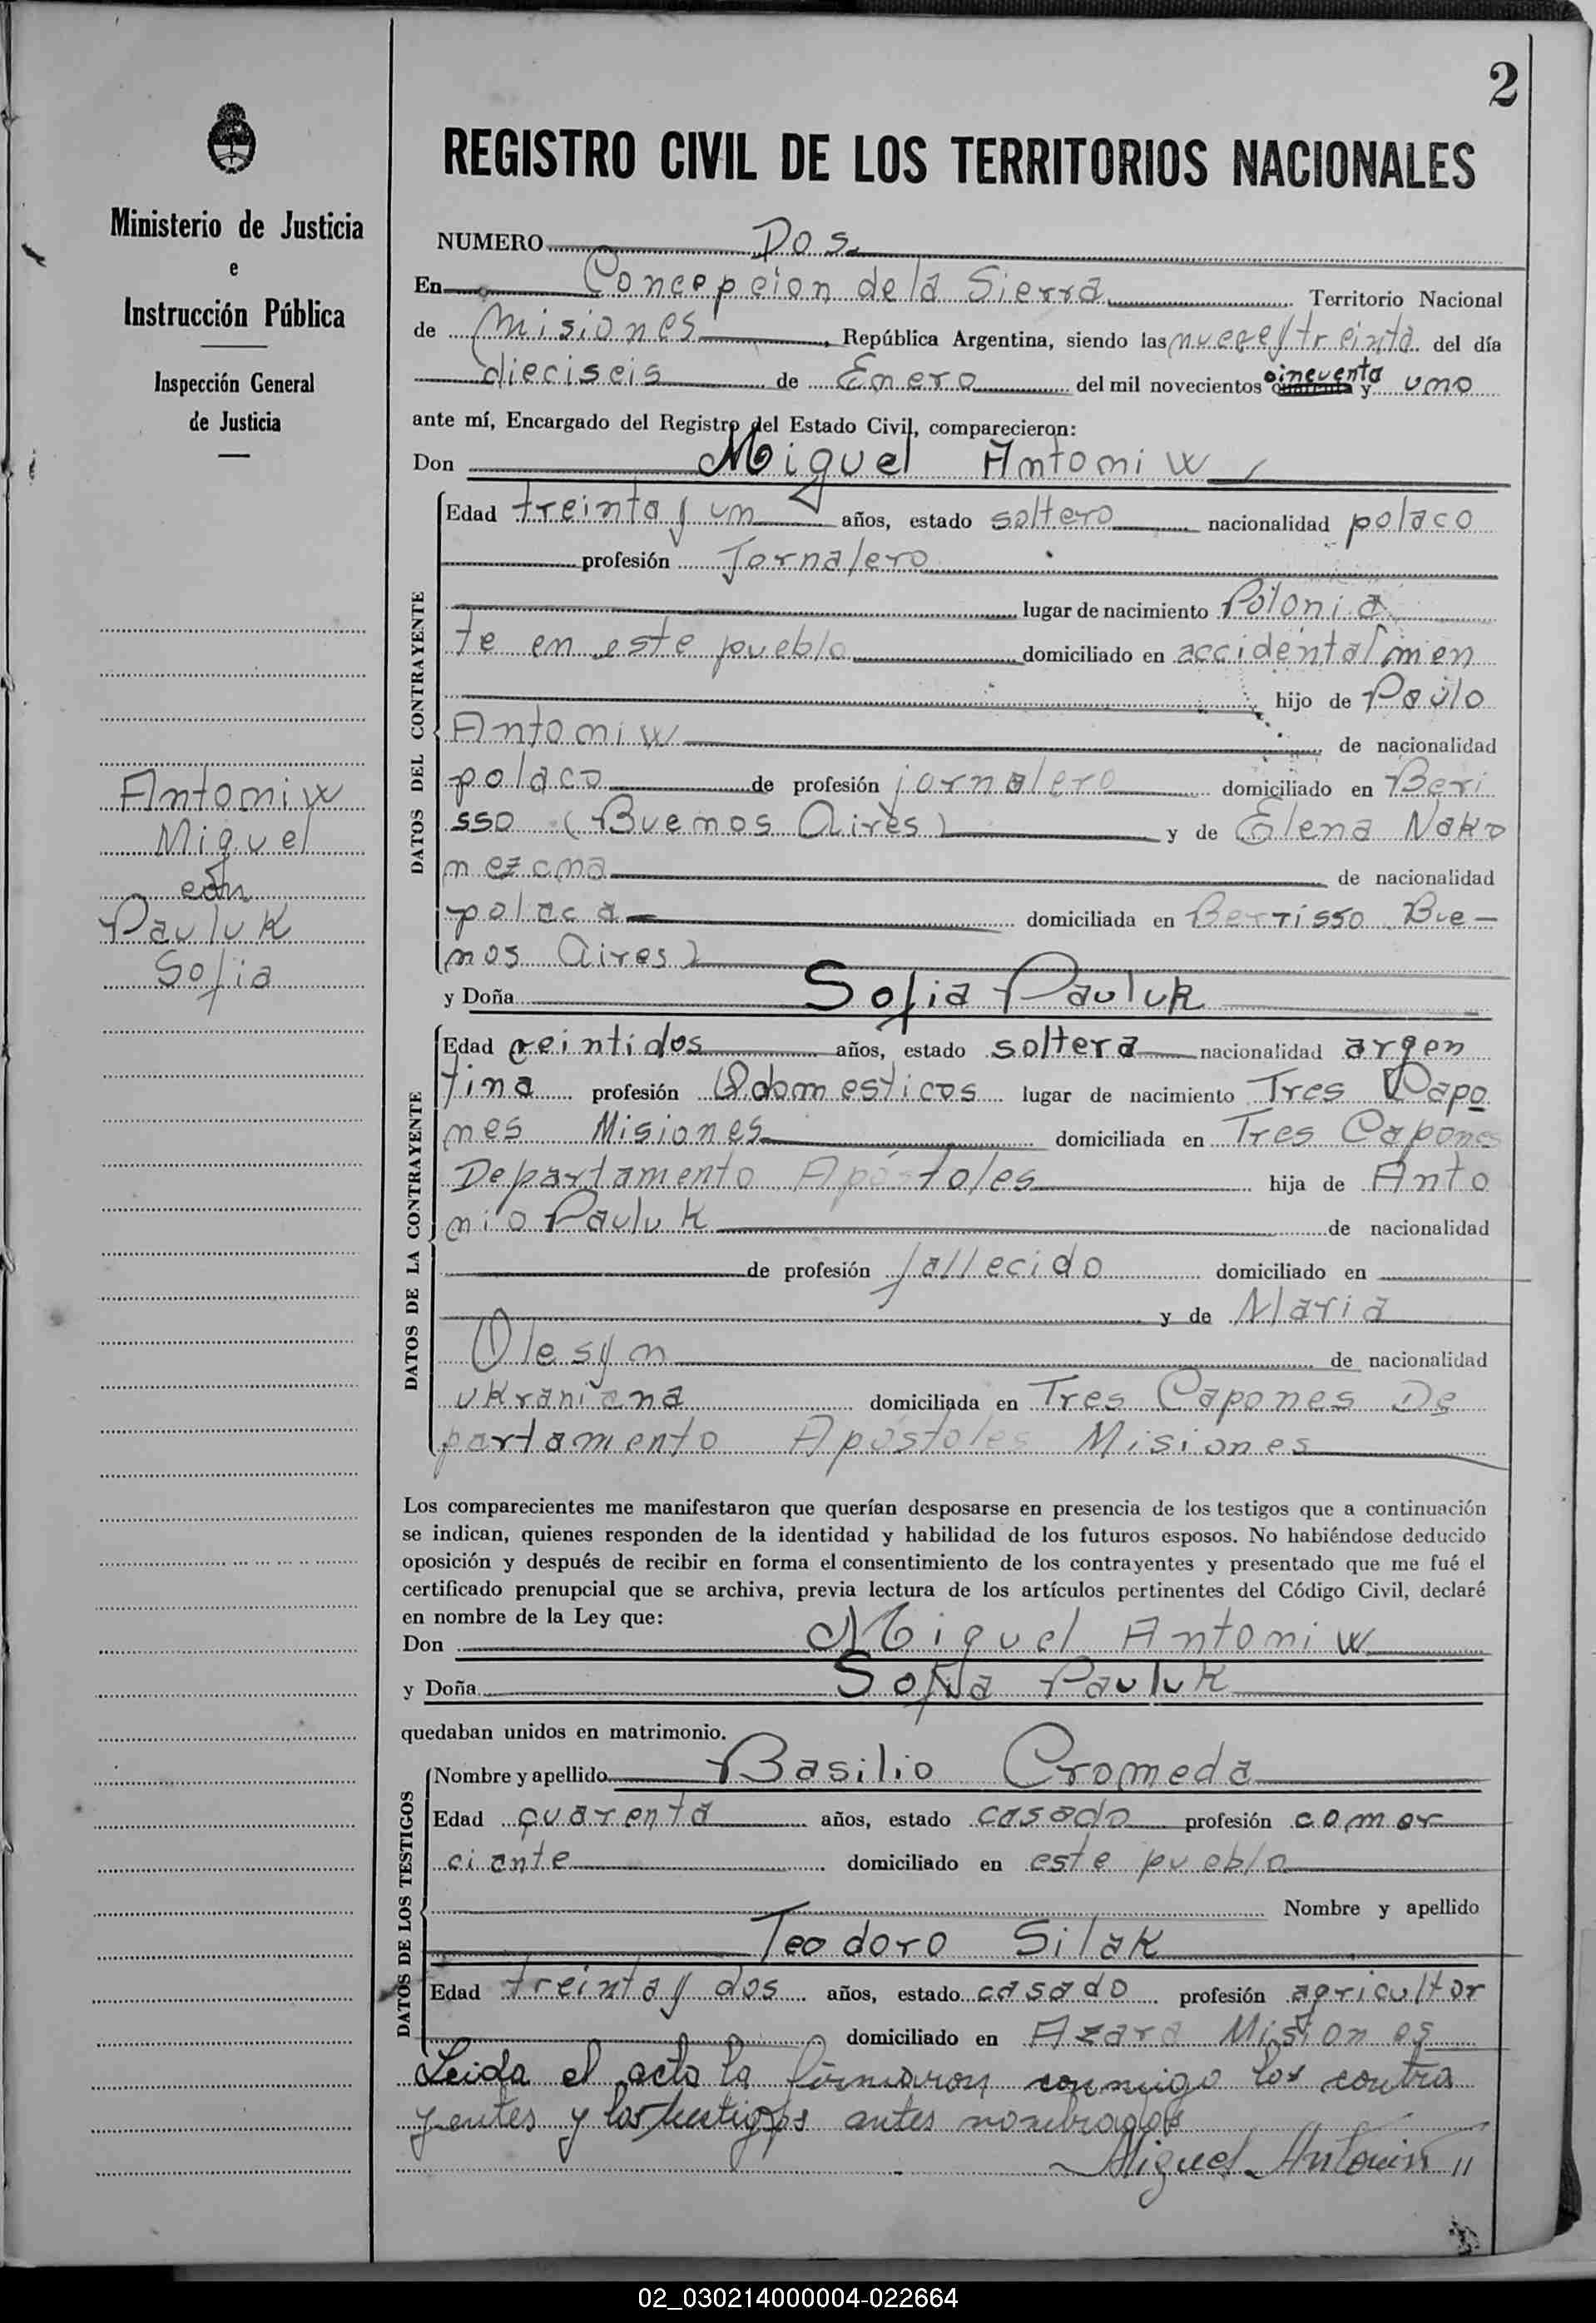 2
Ministerio de Justicia
e
Instrucción Pública
Inspección General
de Justicia
Antoniw
Miguel
con
Pauluk
Sofia
REGISTRO CIVIL DE LOS TERRITORIOS NACIONALES
NUMERO Dos
En Concepcion de la Sierra Territorio Nacional
de Misiones, República Argentina, siendo las nueve y treinta del día
dieciseis de Enero del mil novecientos cincuenta y uno
ante mí, Encargado del Registro del Estado Civil, comparecieron:
Don Miguel Antoniw
DATOS DEL CONTRAYENTE
Edad treinta y un años, estado soltero nacionalidad polaco
profesión Jornalero
lugar de nacimiento Polonia
te en este pueblo domiciliado en accidentalmen
hijo de Paulo
Antoniw de nacionalidad
polaco de profesión jornalero domiciliado en Beri
sso (Buenos Aires) y de Elena Nako
nezcna de nacionalidad
polaca domiciliada en Berrisso Bue-
nos Aires)
y Doña Sofia Pauluk
DATOS DE LA CONTRAYENTE
Edad veintidos años, estado soltera nacionalidad argen
tina profesión Qdomesticos lugar de nacimiento Tres Capo
nes Misiones domiciliada en Tres Capones
Departamento Apóstoles hija de Anto
nio Pauluk de nacionalidad
de profesión fallecido domiciliado en
y de Maria
Olesyn de nacionalidad
ukraniana domiciliada en Tres Capones De
partamento Apóstoles Misiones
Los comparecientes me manifestaron que querían desposarse en presencia de los testigos que a continuación
se indican, quienes responden de la identidad y habilidad de los futuros esposos. No habiéndose deducido
oposición y después de recibir en forma el consentimiento de los contrayentes y presentado que me fué el
certificado prenupcial que se archiva, previa lectura de los artículos pertinentes del Código Civil, declaré
en nombre de la Ley que:
Don Miguel Antoniw
y Doña Sofia Pauluk
quedaban unidos en matrimonio.
DATOS DE LOS TESTIGOS
Nombre y apellido Basilio Cromeda
Edad cuarenta años, estado casado profesión comer
ciante domiciliado en este pueblo
Nombre y apellido
Teodoro Silak
Edad treinta y dos años, estado casado profesión agricultor
domiciliado en Azara Misiones
Leida el acta la firmaron conmigo los contra
yentes y los testigos antes nombrados
Miguel Antoniw
02_030214000004-022664